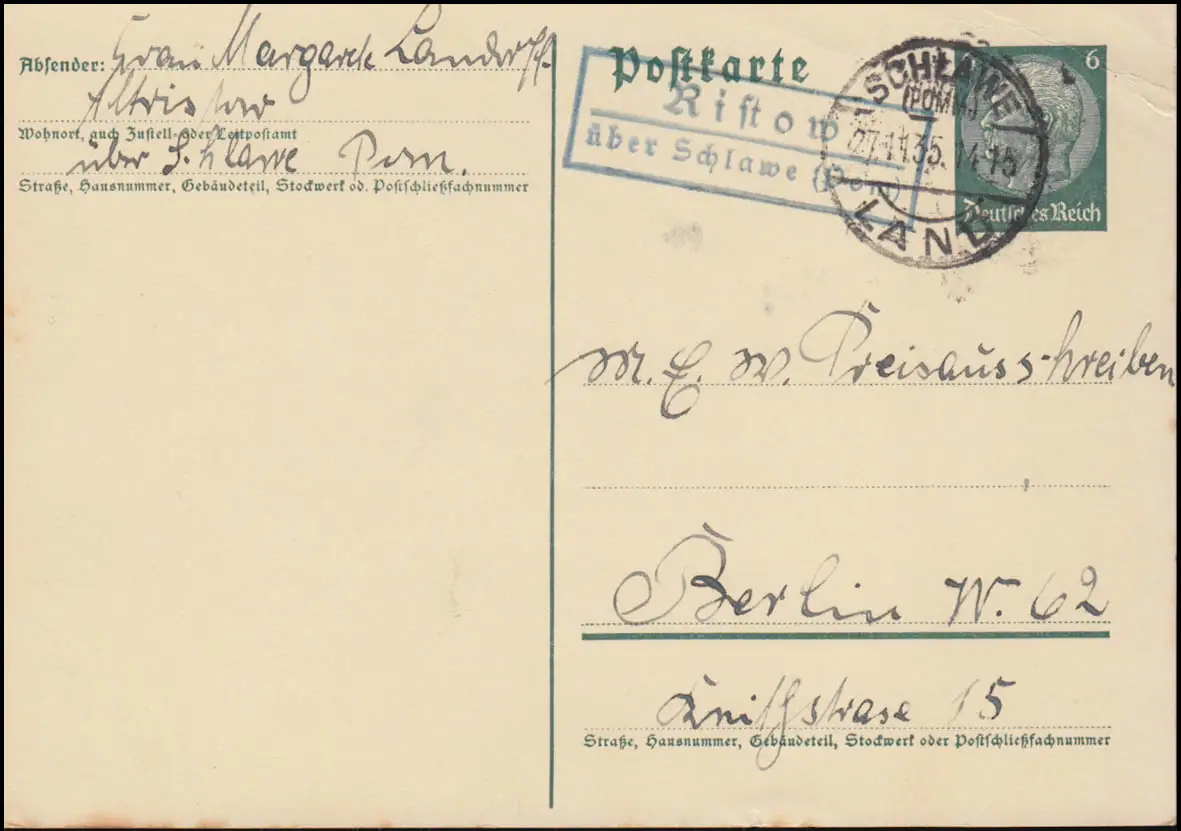 Absender: Frau Margarete
Altristow
Wohnort, auch Zustell- oder Leitpostamt
über Schlawe Pom.
Straße, Hausnummer, Gebäudeteil, Stockwerk od. Postschließfachnummer
Postkarte
Ristow
über Schlawe (Pom)
SCHLAWE
(POMM)
27.11.35. 14-15
LAND
6
Deutsches Reich
M. E. W. Preisausschreiben
Berlin W. 62
15
Straße, Hausnummer, Gebäudeteil, Stockwerk oder Postschließfachnummer